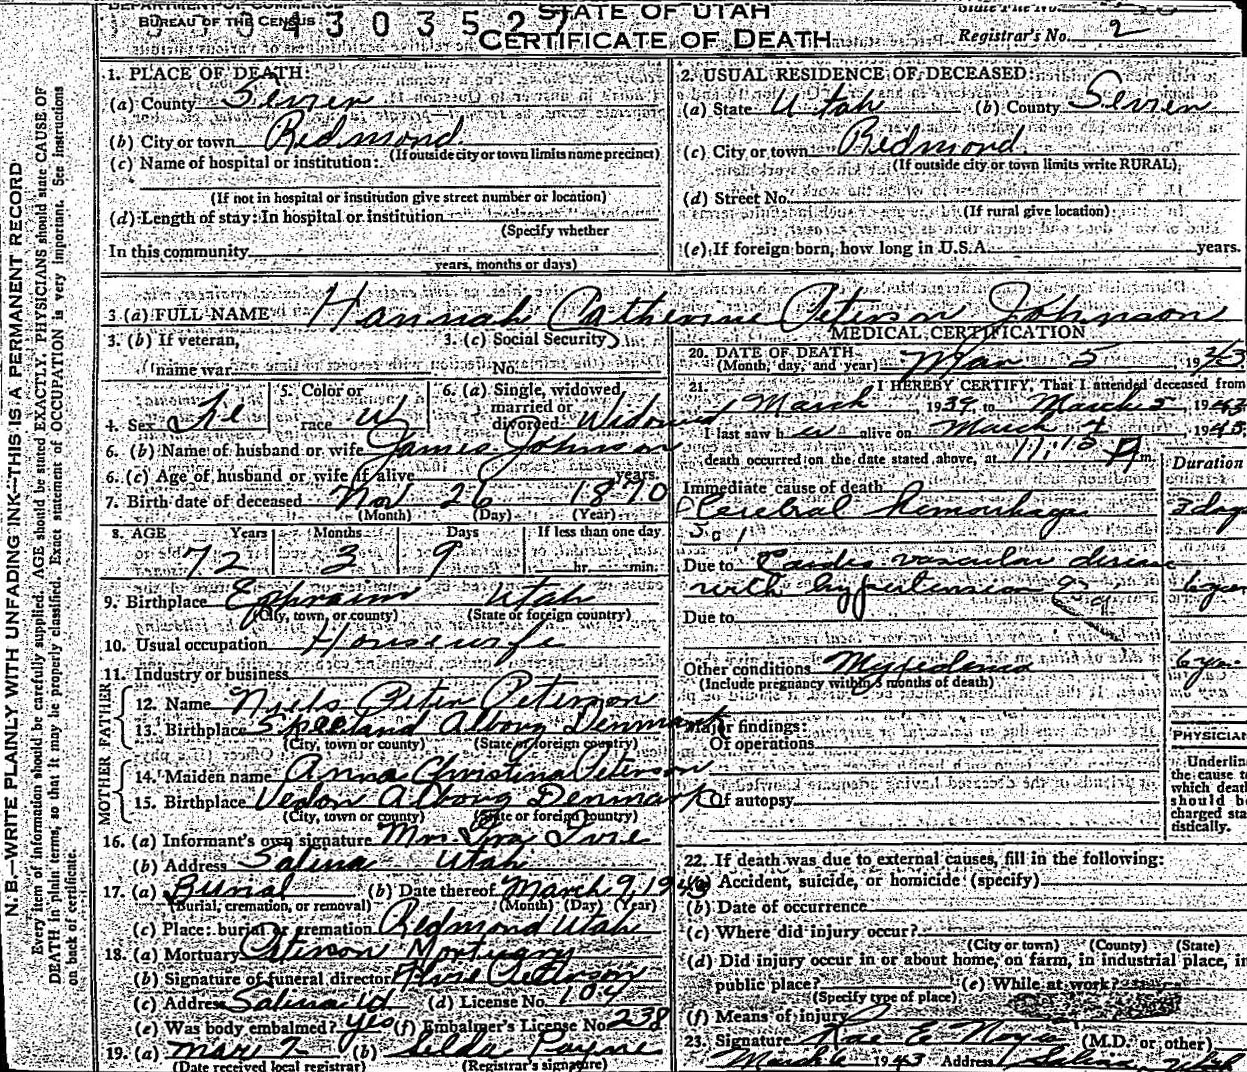 DEPARTMENT OF COMMERCE
BUREAU OF THE CENSUS
4303527
STATE OF UTAH
CERTIFICATE OF DEATH
State File No.
Registrar's No. 2
N. B.—WRITE PLAINLY WITH UNFADING INK—THIS IS A PERMANENT RECORD
Every item of information should be carefully supplied. AGE should be stated EXACTLY. PHYSICIANS should state CAUSE OF
DEATH in plain terms, so that it may be properly classified. Exact statement of OCCUPATION is very important. See instructions
on back of certificate.
1. PLACE OF DEATH:
(a) County Sevier
(b) City or town Redmond
(If outside city or town limits name precinct)
(c) Name of hospital or institution:
(If not in hospital or institution give street number or location)
(d) Length of stay: In hospital or institution
(Specify whether
In this community
years, months or days)
2. USUAL RESIDENCE OF DECEASED:
(a) State Utah (b) County Sevier
(c) City or town Redmond
(If outside city or town limits write RURAL)
(d) Street No.
(If rural give location)
(e) If foreign born, how long in U.S.A. years.
3 (a) FULL NAME Hannah Catherine Peterson Johnson
3. (b) If veteran, 3. (c) Social Security
name war No.
4. Sex Fe 5. Color or race W 6. (a) Single, widowed married or divorced Widowed
6. (b) Name of husband or wife James Johnson
6. (c) Age of husband or wife if alive years.
7. Birth date of deceased Nov 26 1870
(Month) (Day) (Year)
8. AGE Years Months Days If less than one day
72 3 9 hr. min.
9. Birthplace Ephraim Utah
(City, town, or county) (State of foreign country)
10. Usual occupation Housewife
11. Industry or business
FATHER
12. Name Niels Peter Peterson
13. Birthplace Alborg Denmark
(City, town or county) (State of foreign country)
MOTHER
14. Maiden name Anna Christina Peterson
15. Birthplace Alborg Denmark
(City, town or county) (State or foreign country)
16. (a) Informant's own signature Mrs. Ivie
(b) Address Salina Utah
17. (a) Burial (b) Date thereof March 9, 1943
(Burial, cremation, or removal) (Month) (Day) (Year)
(c) Place: burial or cremation Redmond Utah
18. (a) Mortuary Mortuary
(b) Signature of funeral director
(c) Address Salina Ut (d) License No. 104
(e) Was body embalmed? yes (f) Embalmer's License No. 238
19. (a) Mar 7 (b) Selda Payne
(Date received local registrar) (Registrar's signature)
MEDICAL CERTIFICATION
20. DATE OF DEATH Mar 5 1943
(Month, day, and year)
21. I HEREBY CERTIFY, That I attended deceased from
March, 1939, to March 5, 1943
I last saw her alive on March 4, 1943
death occurred on the date stated above, at 11:15 m.
Duration
Immediate cause of death
Cerebral hemorrhage 3 days
Due to Cardio vascular disease
with hypertension
Due to
Other conditions Myxedema
(Include pregnancy within 3 months of death)
Major findings:
Of operations
Of autopsy
PHYSICIAN
Underline
the cause to
which death
should be
charged sta-
tistically.
22. If death was due to external causes, fill in the following:
(a) Accident, suicide, or homicide (specify)
(b) Date of occurrence
(c) Where did injury occur?
(City or town) (County) (State)
(d) Did injury occur in or about home, on farm, in industrial place, in
public place? (e) While at work?
(Specify type of place)
(f) Means of injury
23. Signature Rae E Noyes (M.D. or other)
March 6 1943 Address Salina Utah